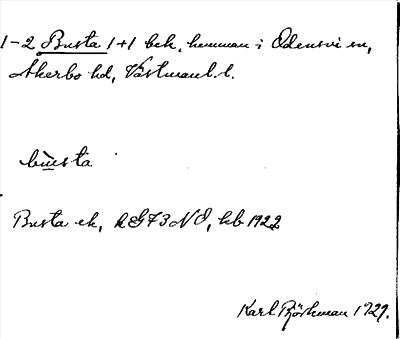 1-2 Busta 1+1 bek. hemman i Odensvi sn,
Åkerbo hd, Västmanl. l.
bùsta
Busta ek, kG73NO, kb 1922
Karl Björkman 1929.